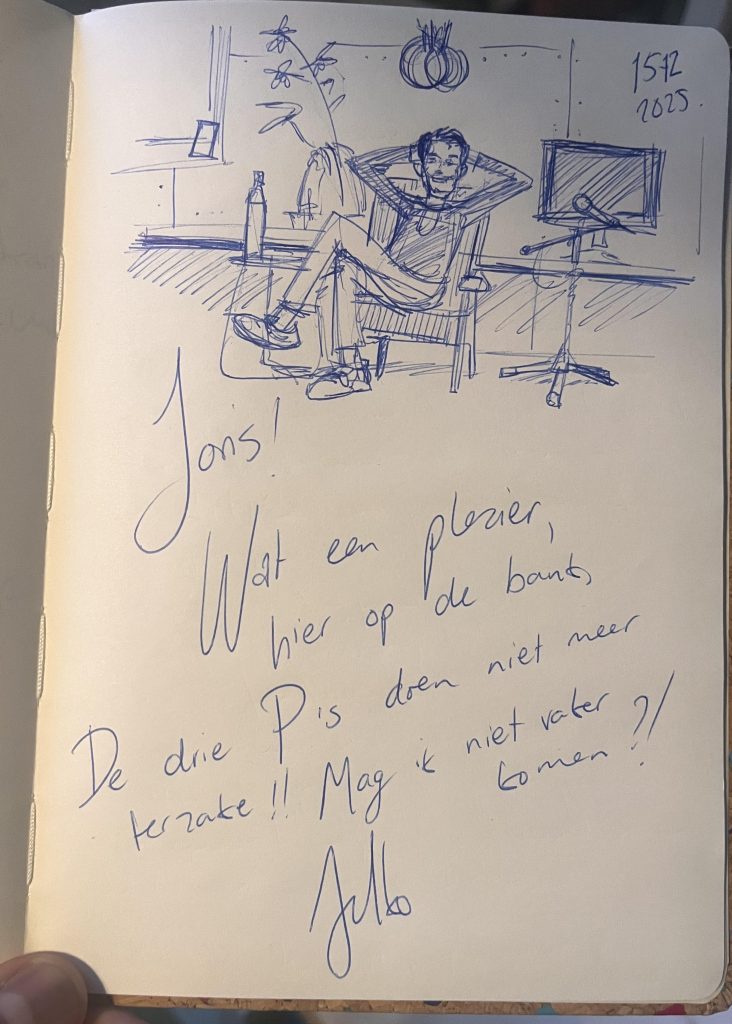 1512
2025.
Joris!
Wat een plezier,
hier op de bank,
De drie P's doen niet meer
terzake!! Mag ik niet vaker
komen?!
Jelko